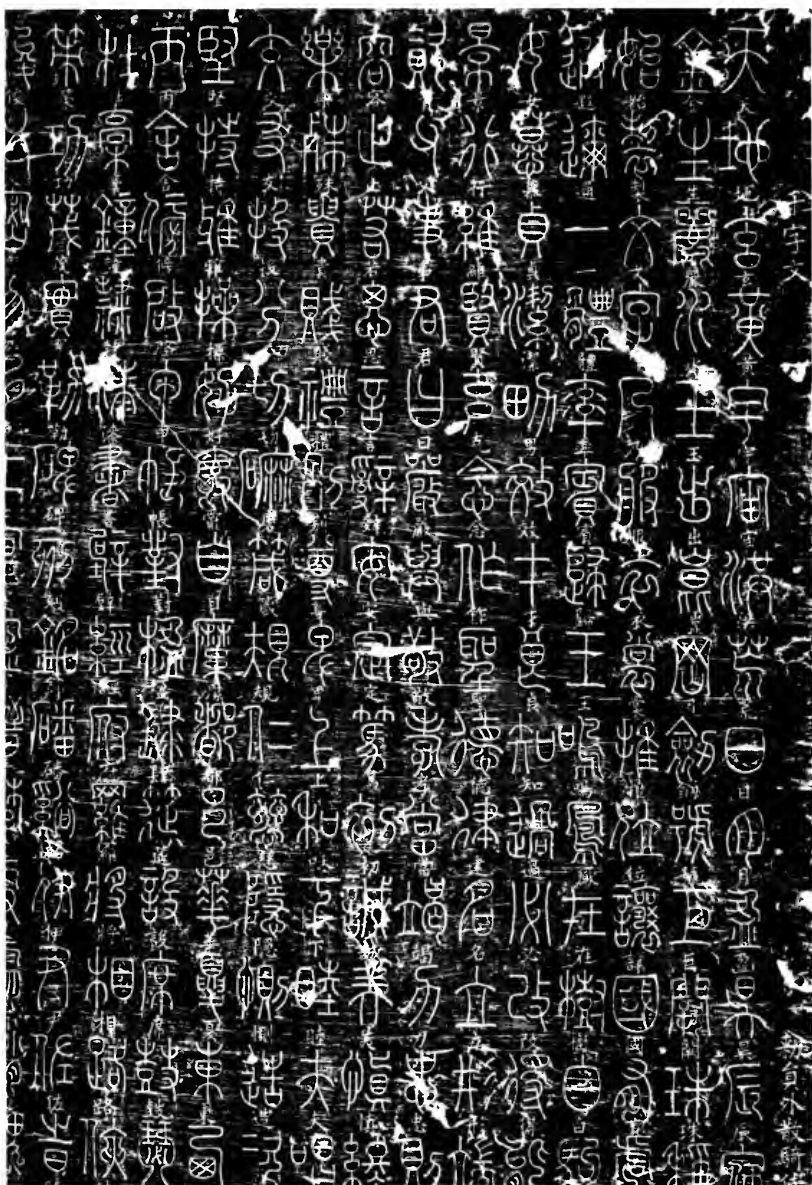 千字文
天地玄黃宇宙洪荒日月盈昃辰宿
金生麗水玉出崑岡劍號巨闕珠稱
始制文字乃服衣裳推位讓國有虞
遐邇壹體率賓歸王鳴鳳在樹白駒
女慕貞潔男效才良知過必改得能
景行維賢克念作聖德建名立形端
資父事君曰嚴與敬孝當竭力忠則
容止若思言辭安定篤初誠美慎終
樂殊貴賤禮別尊卑上和下睦夫唱
交友投分切磨箴規仁慈隱惻造次
堅持雅操好爵自縻都邑華夏東西
丙舍傍啟甲帳對楹肆筵設席鼓瑟
杜稾鍾隸漆書壁經府羅將相路俠
策功茂實勒碑刻銘磻溪伊尹佐時